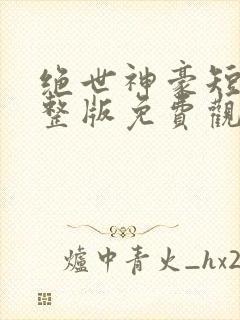 绝世神豪短
整版免費觀
爐中青火_hx2